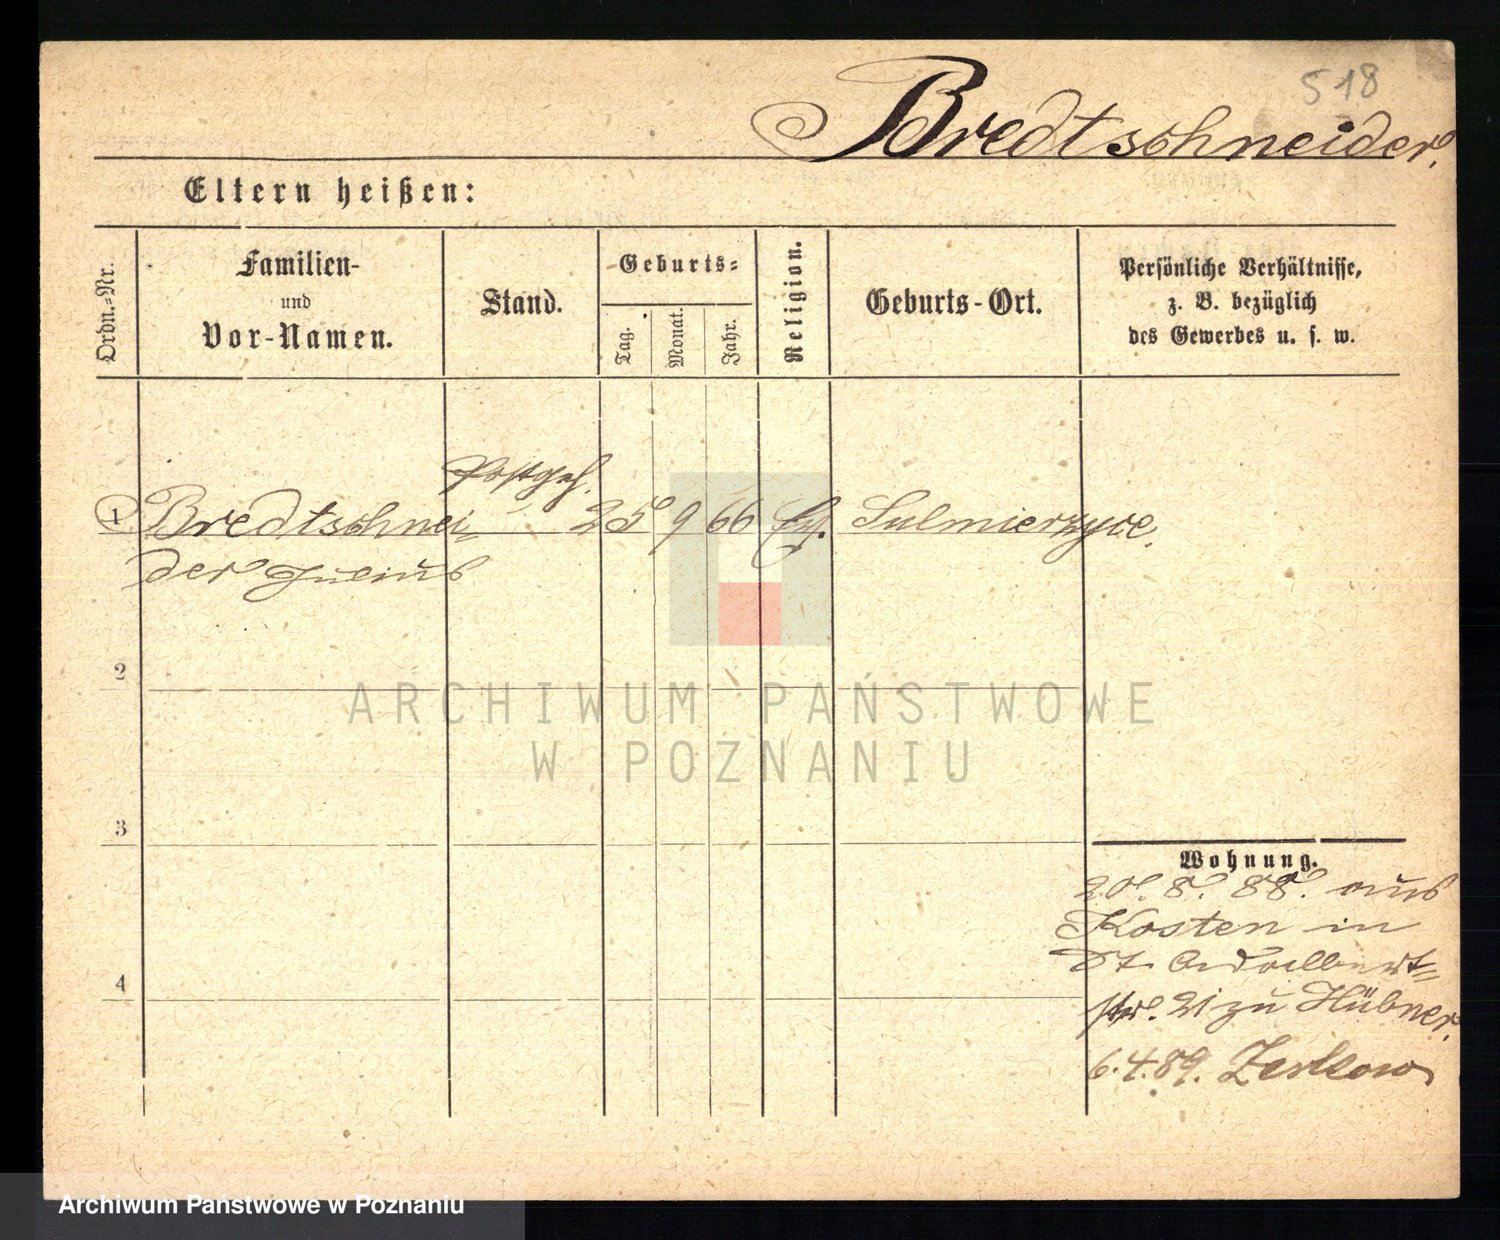 518
Bredtschneider.
Eltern heißen:
Ordn.-Nr.
Familien-
und
Vor-Namen.
Stand.
Geburts-
Tag.
Monat.
Jahr.
Religion.
Geburts-Ort.
Persönliche Verhältnisse,
z. B. bezüglich
des Gewerbes u. s. w.
Postgeh.
1 Bredtschnei- 25 9 66 Sulmierzyce.
der Julius
2
3
4
Wohnung.
20. 8. 88. aus
Kosten in
St. Adalbert-
str. 21 zu Hübner.
6.4.89. Zerkow
ARCHIWUM PAŃSTWOWE
W POZNANIU
Archiwum Państwowe w Poznaniu